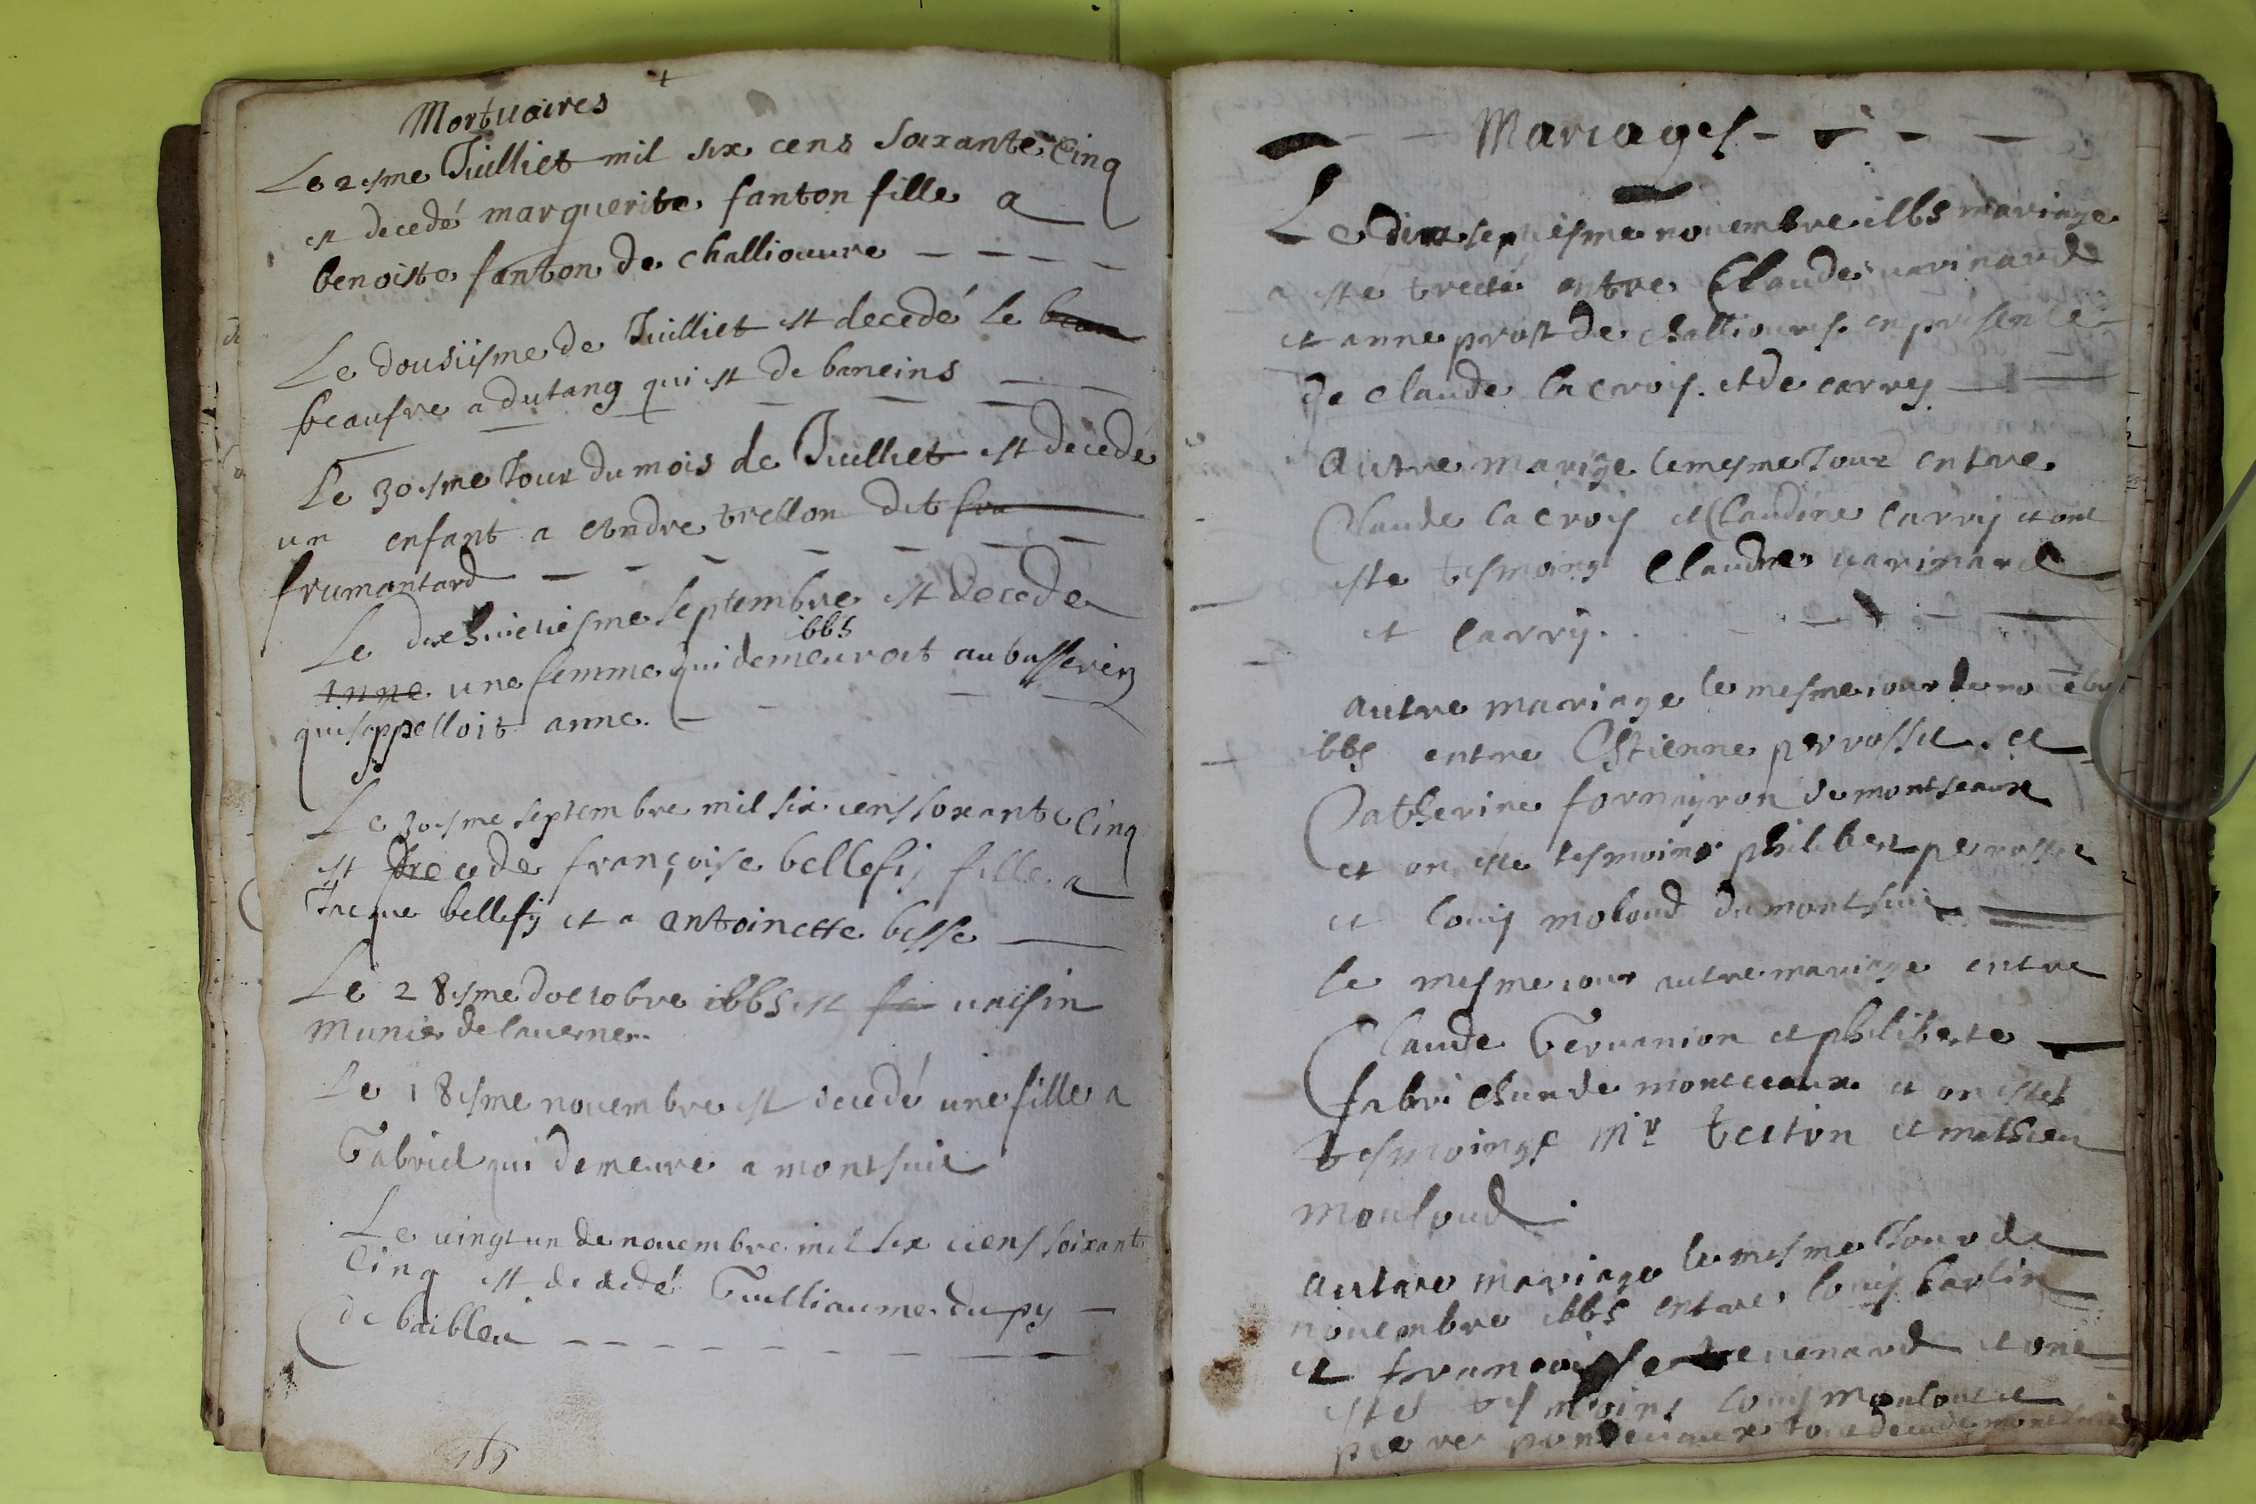 Mortuaires
Le 2esme Juilliet mil six cens soixante cinq
est decedé marguerite fanton fille a
benoiste fanton de challiouure
Le dousiisme de Juilliet est decedé le
beaufre a dutang qui est de baneins
Le 30esme Jour du mois de Juilliet est decedé
un enfant a Andre trellon dit fru
frumantard
Le dixhuictiesme septembre est decede
1665
Anne une femme qui demeuroit au busserin
qui sappelloit anne.
Le 30esme septembre mil six cens soxante Cinq
est decede françoise bellefij fille a
Jacque bellefij et a antoinette besse
Le 28esme doctobre 1665 est unisin
Munie de lauerne
Le 18esme nouembre est decedé une fille a
Gabriel qui demeure a montsuit
Le uingt un de nouembre mil six cens soixant
Cinq est decedé Guilliaume dupy
de baibleu
Mariages
Le dix septiesme nouembre 1665 mariage
a este trecté entre Claude uarinard
et anne prost de challioures en presence
de Claude lacrois et de carry
Autre mariage le mesme Jour entre
Claude lacrois et Claudine Carrij et ont
este tesmoings Claude uarinard
et Carrij.
Autre mariage le mesme iour de nouēbre
1665 entre Estienne perrosset et
Catherine fornayron de montseaux
et on este tesmoins philibert perrosset
et louis moloud de montsuit
le mesme iour autre mariage entre
Claude Geruanion et philiberte
fabrichun de montceaux et on estes
tesmoings Mr teston et mathieu
mouloud.
Autre mariage le mesme Jour de
nouembre 1665 entre louis Carlin
et francoisse teuenard et ont
estes tesmoins louis mouloud et
pierre